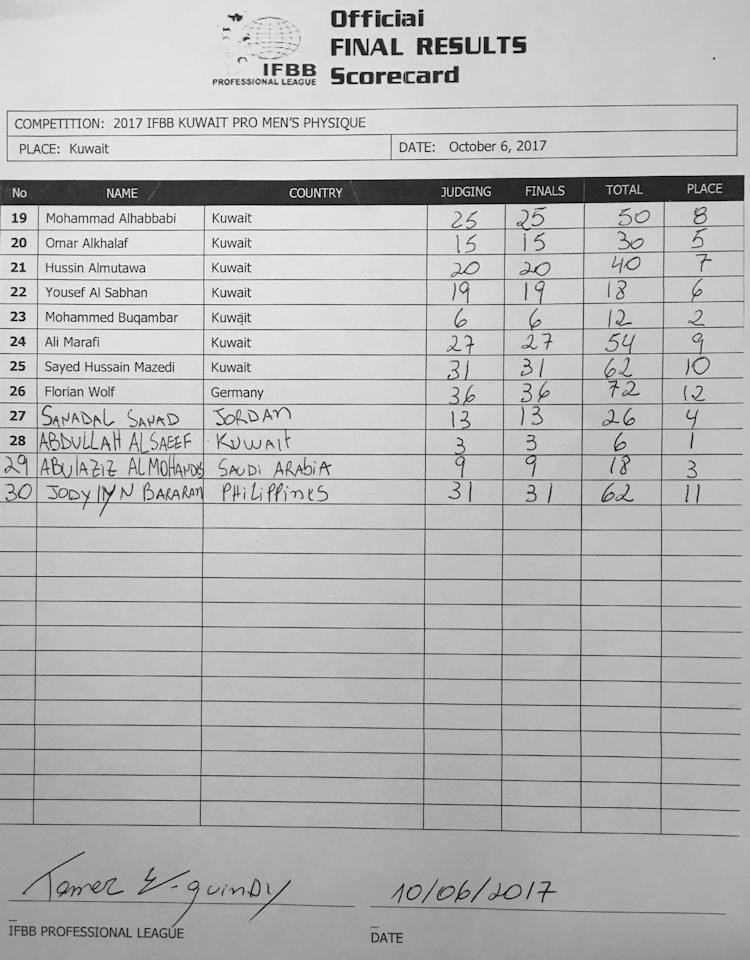 Official
FINAL RESULTS
IFBB Scorecard
PROFESSIONAL LEAGUE
COMPETITION: 2017 IFBB KUWAIT PRO MEN'S PHYSIQUE
PLACE: Kuwait DATE: October 6, 2017
No NAME COUNTRY JUDGING FINALS TOTAL PLACE
19 Mohammad Alhabbabi Kuwait 25 25 50 8
20 Omar Alkhalaf Kuwait 15 15 30 5
21 Hussin Almutawa Kuwait 20 20 40 7
22 Yousef Al Sabhan Kuwait 19 19 18 6
23 Mohammed Buqambar Kuwait 6 6 12 2
24 Ali Marafi Kuwait 27 27 54 9
25 Sayed Hussain Mazedi Kuwait 31 31 62 10
26 Florian Wolf Germany 36 36 72 12
27 SANADAL SANAD JORDAN 13 13 26 4
28 ABDULLAH ALSAEEF KUWAIT 3 3 6 1
29 ABULAZIZ ALMOHANDES SAUDI ARABIA 9 9 18 3
30 JODY BARARAN PHILIPPINES 31 31 62 11
Tamer El-guindy 10/06/2017
IFBB PROFESSIONAL LEAGUE DATE